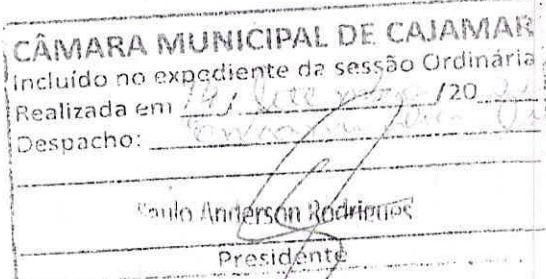 CÂMARA MUNICIPAL DE CAJAMAR
Incluído no expediente da sessão Ordinária
Realizada em 14 / /20
Despacho:
Paulo Anderson Rodrigues
Presidente